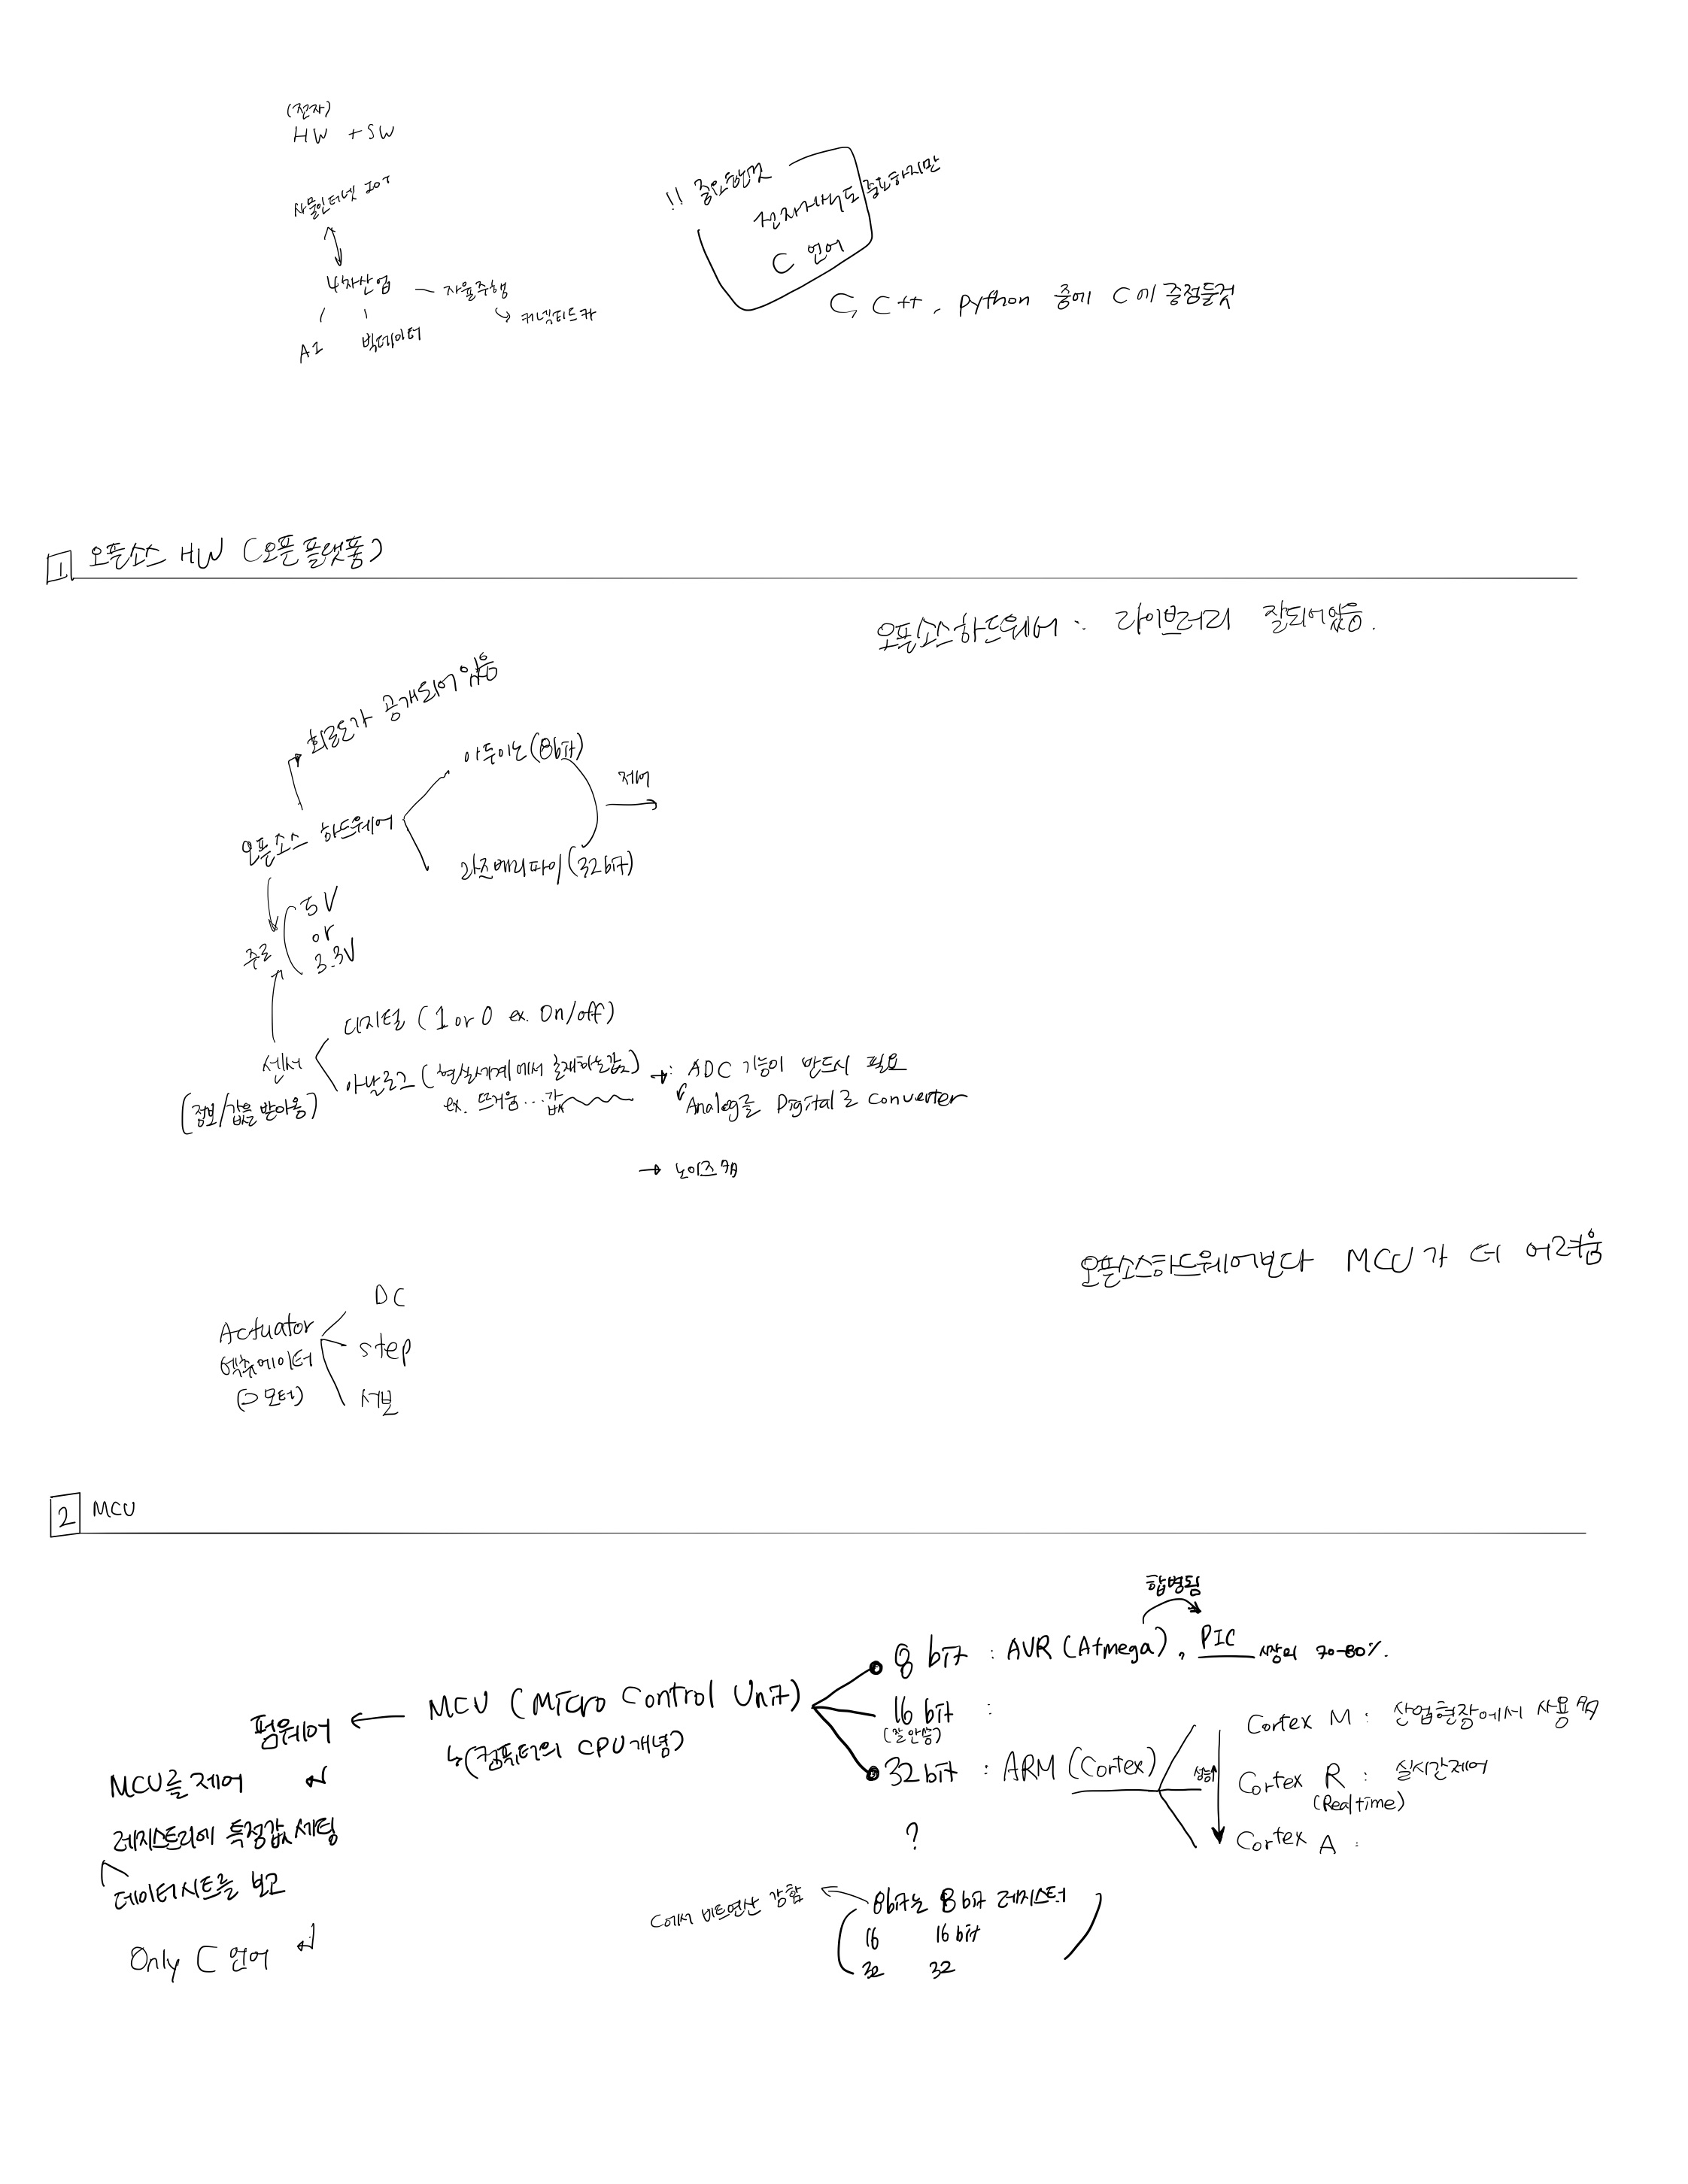 (전자)
HW + SW
사물인터넷 IOT
4차산업 — 자율주행
↳ 커넥티드카
AI 빅데이터
!! 중요한것
전자지식도 중요하지만
C 언어
C, C++, Python 중에 C에 중점둘것
1 오픈소스 HW (오픈플랫폼)
오픈소스하드웨어 : 라이브러리 잘되어있음.
회로도가 공개되어 있음
아두이노 (8bit)
제어
오픈소스 하드웨어
라즈베리파이 (32bit)
5V
or
주로 3.3V
디지털 (1 or 0 ex. On/off)
센서
(정보/값을 받아옴)
아날로그 (현실세계에서 존재하는값) → : ADC 기능이 반드시 필요
ex. 뜨거움... 값
Analog를 Digital로 Converter
→ 노이즈 多
오픈소스하드웨어보다 MCU가 더 어려움
DC
Actuator
엑츄에이터
step
(⊃ 모터)
서보
2 MCU
합병됨
8 bit : AVR (Atmega), PIC 시장의 70-80%.
MCU (Micro Control Unit)
↳ (컴퓨터의 CPU개념)
16 bit :
(잘안씀)
32 bit : ARM (Cortex)
성능↑
Cortex M : 산업현장에서 사용 多
Cortex R : 실시간제어
(Real time)
Cortex A :
?
펌웨어
MCU를 제어
레지스트리에 특정값 세팅
데이터시트를 보고
Only C 언어
C에서 비트연산 강함
8bit는 8bit 레지스터
16 16 bit
32 32